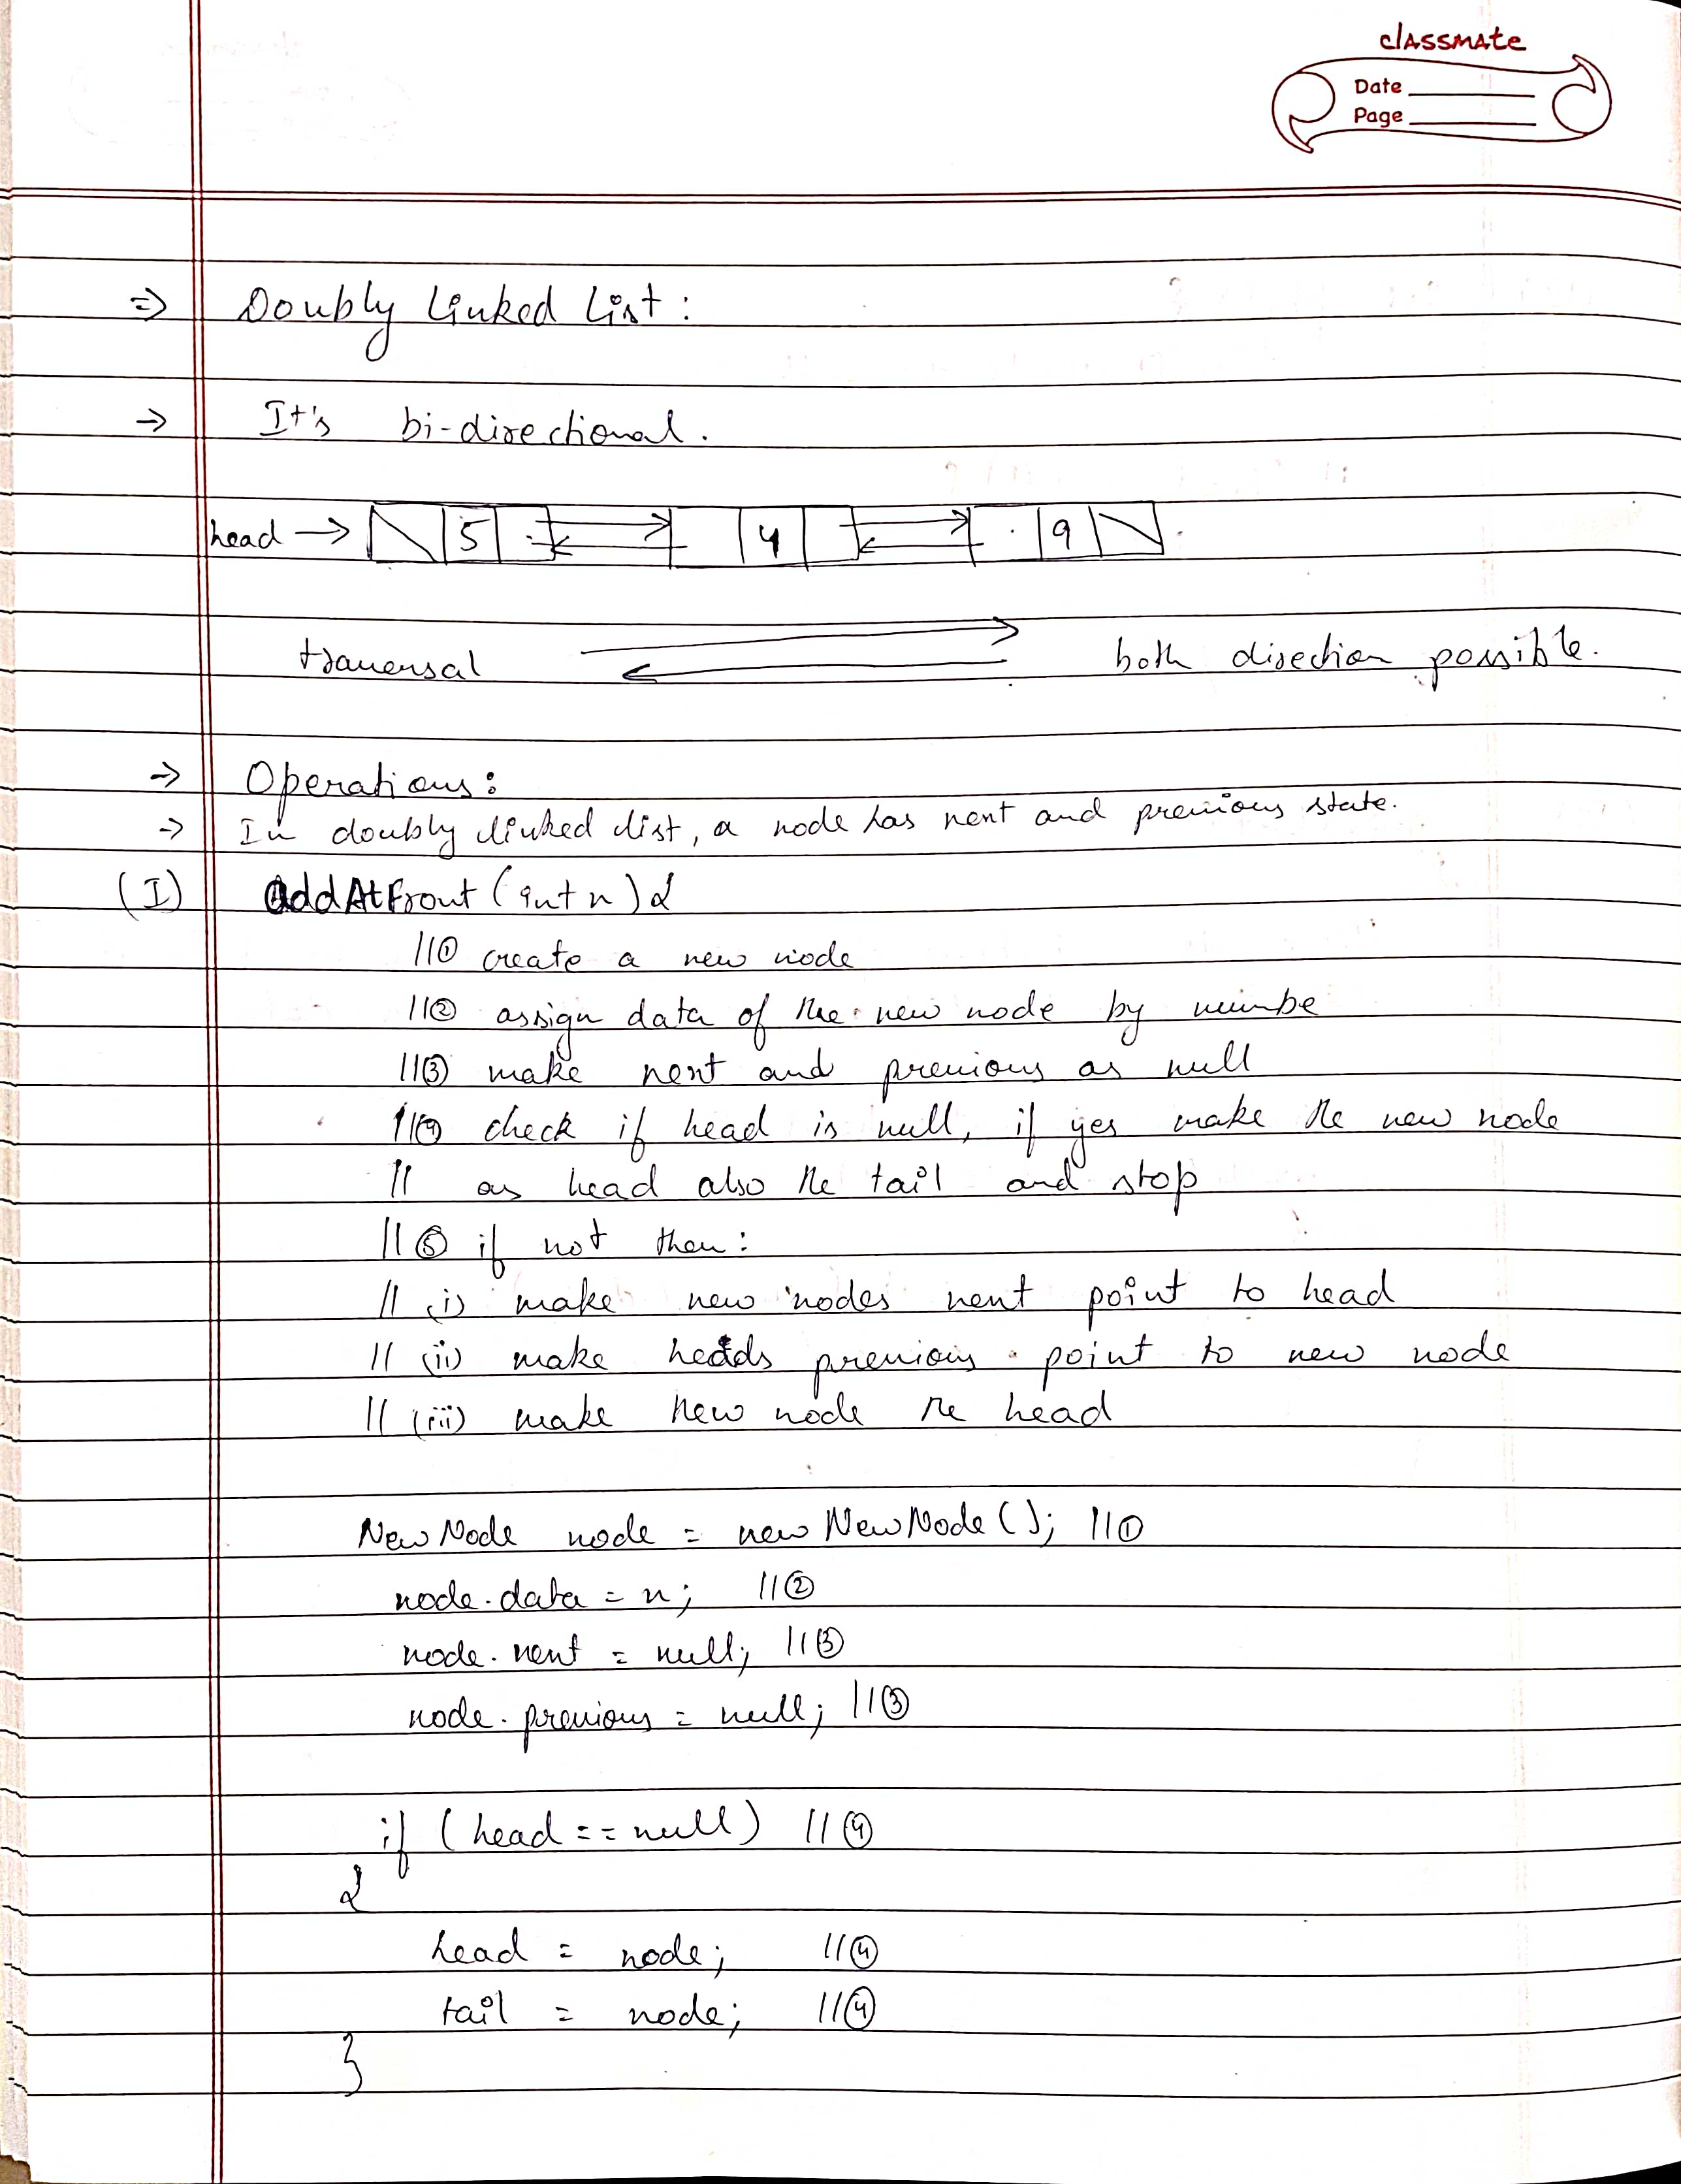 classmate
Date
Page
=> Doubly Linked List:
→ It's bi-directional.
head → 5 4 9
traversal both direction possible.
→ Operations:
→ In doubly linked list, a node has next and previous state.
(I) addAtFront(int n){
//① create a new node
//② assign data of the new node by numbe
//③ make next and previous as null
//④ check if head is null, if yes make the new node
// as head also the tail and stop
//⑤ if not then:
// (i) make new nodes next point to head
// (ii) make heads previous point to new node
// (iii) make new node the head
NewNode node = new NewNode(); //①
node.data = n; //②
node.next = null; //③
node.previous = null; //③
if (head == null) //④
{
head = node; //④
tail = node; //④
}